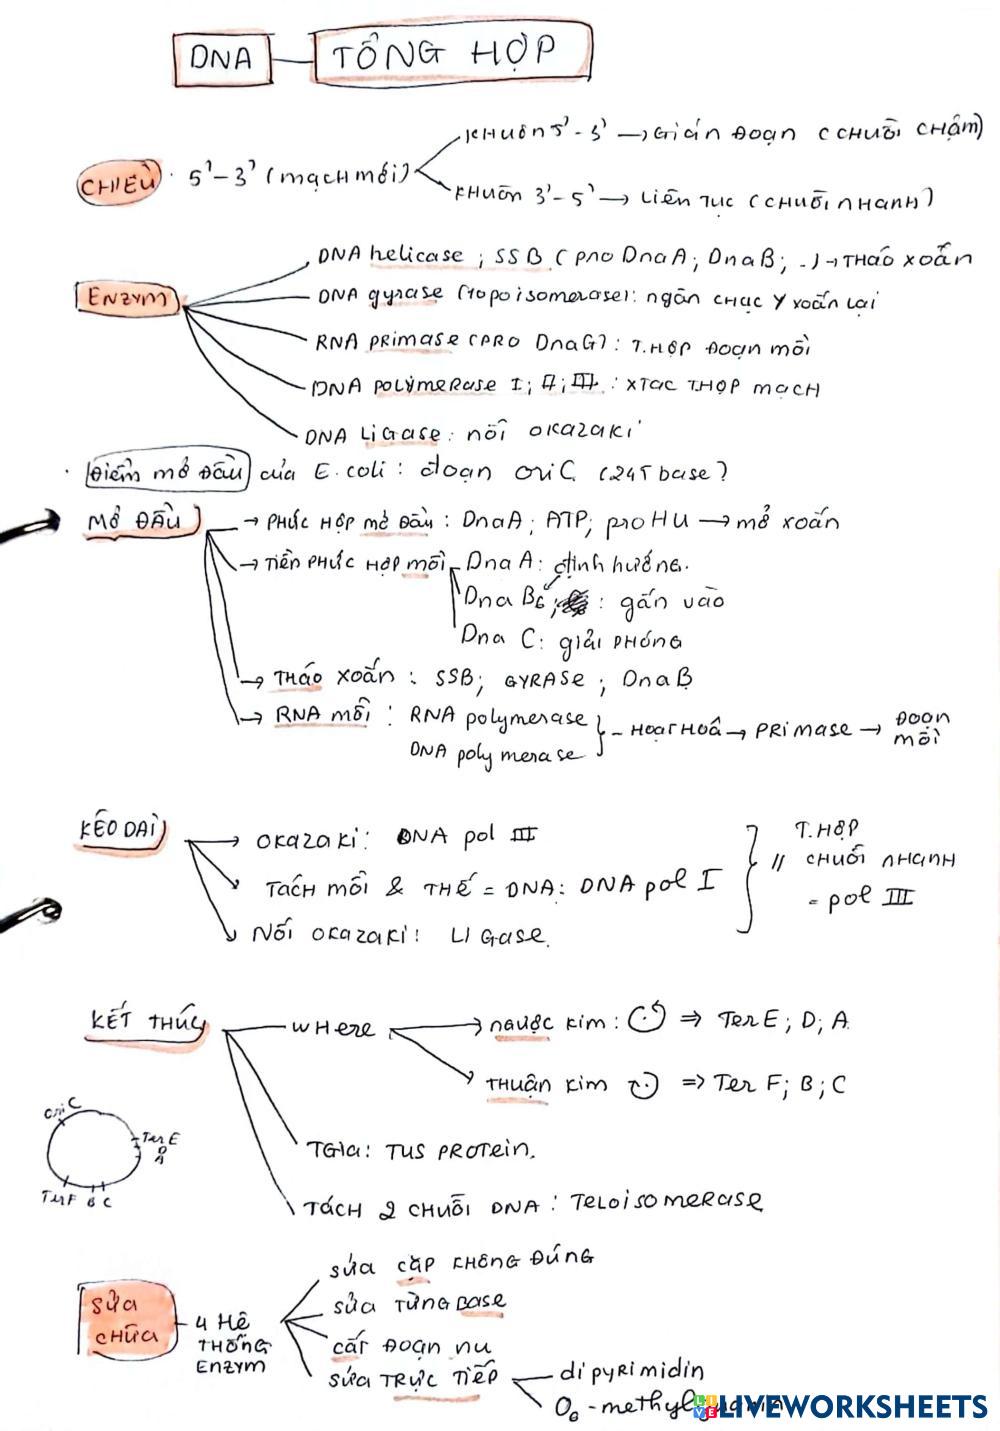 DNA TỔNG HỢP
KHUÔN 5' - 3' → GIÁN ĐOẠN (CHUỖI CHẬM)
CHIỀU · 5' - 3' (MẠCH MỚI)
KHUÔN 3' - 5' → LIÊN TỤC (CHUỖI NHANH)
DNA helicase ; SSB (pro DnaA ; DnaB ; ..) → THÁO XOẮN
ENZYM
DNA gyrase (topoisomerase) : NGĂN CHẶC Y XOẮN LẠI
RNA PRIMASE (PRO DnaG) : T.HỢP ĐOẠN MỒI
DNA POLYMERASE I ; II ; III : XTAC T.HỢP MẠCH
DNA LIGASE : NỐI OKAZAKI
· ĐIỂM MỞ ĐẦU của E.coli : đoạn oriC (245 base)
MỞ ĐẦU → PHỨC HỢP MỞ ĐẦU : DnaA ; ATP ; pro HU → mở xoắn
→ TIỀN PHỨC HỢP MỒI DnaA : định hướng.
DnaB6 ; : gắn vào
Dna C : giải PHÓNG
→ THÁO XOẮN : SSB ; GYRASE ; DnaB
→ RNA MỒI : RNA polymerase
DNA polymerase
- HOẠT HOÁ → PRIMASE → ĐOẠN MỒI
KÉO DÀI
→ OKAZAKI : DNA pol III
TÁCH MỒI & THẾ = DNA : DNA pol I
NỐI OKAZAKI : LIGASE.
T.HỢP
// CHUỖI NHANH
= pol III
KẾT THÚC WHERE → NGƯỢC KIM : ⇒ Ter E ; D ; A
THUẬN KIM ⇒ Ter F ; B ; C
oriC
Ter E
D
A
Ter F B C
TGIA : TUS PROTEIN.
TÁCH 2 CHUỖI DNA : TELOISOMERASE
SỬA CHỮA - 4 HỆ THỐNG ENZYM
SỬA CẶP KHÔNG ĐÚNG
SỬA TỪNG BASE
CẮT ĐOẠN NU
SỬA TRỰC TIẾP
dipyrimidin
O6 - methylguanin
LIVEWORKSHEETS